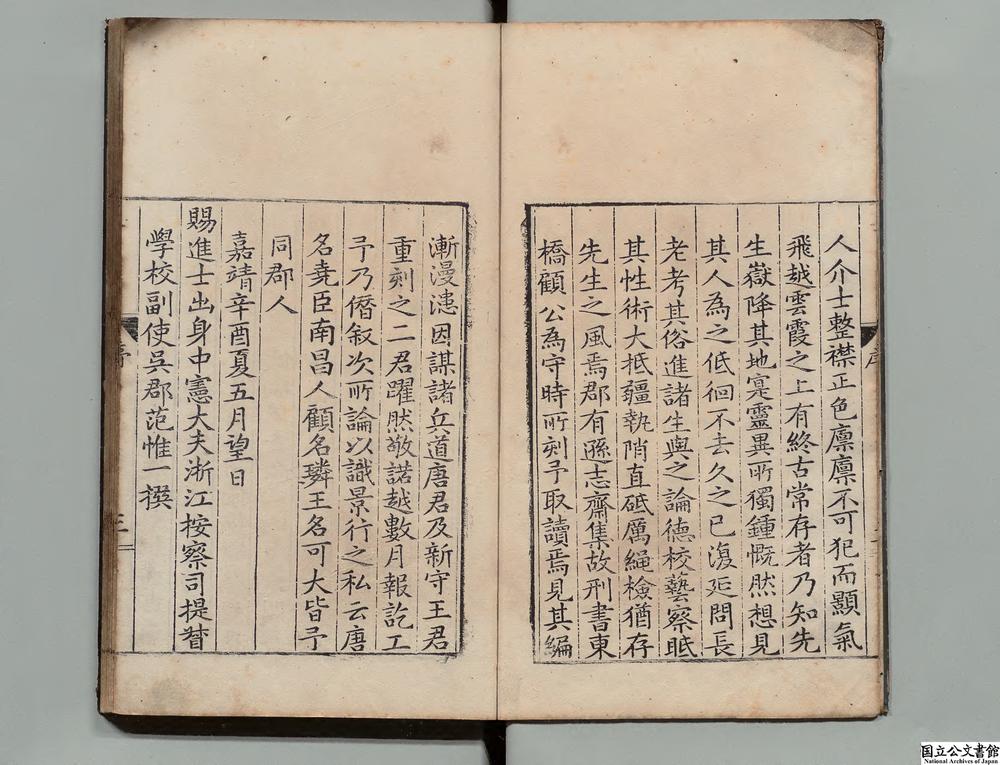 人介士整襟正色廪廪不可犯而顯氣
飛越雲霞之上有終古常存者乃知先
生嶽降其地寔靈異所獨鍾慨然想見
其人為之低徊不去久之已復延問長
老考其俗進諸生與之論德校藝察眡
其性術大抵疆執陗直砥厲繩檢猶存
先生之風焉郡有遜志齋集故刑書東
橋顧公為守時所刻予取讀焉見其編
漸漫漶因謀諸兵道唐君及新守王君
重刻之二君躍然敬諾越數月報訖工
予乃僭叙次所論以識景行之私云唐
名堯臣南昌人顧名璘王名可大皆予
同郡人
嘉靖辛酉夏五月望日
賜進士出身中憲大夫浙江按察司提督
學校副使吳郡范惟一撰
序
三
国立公文書館
National Archives of Japan